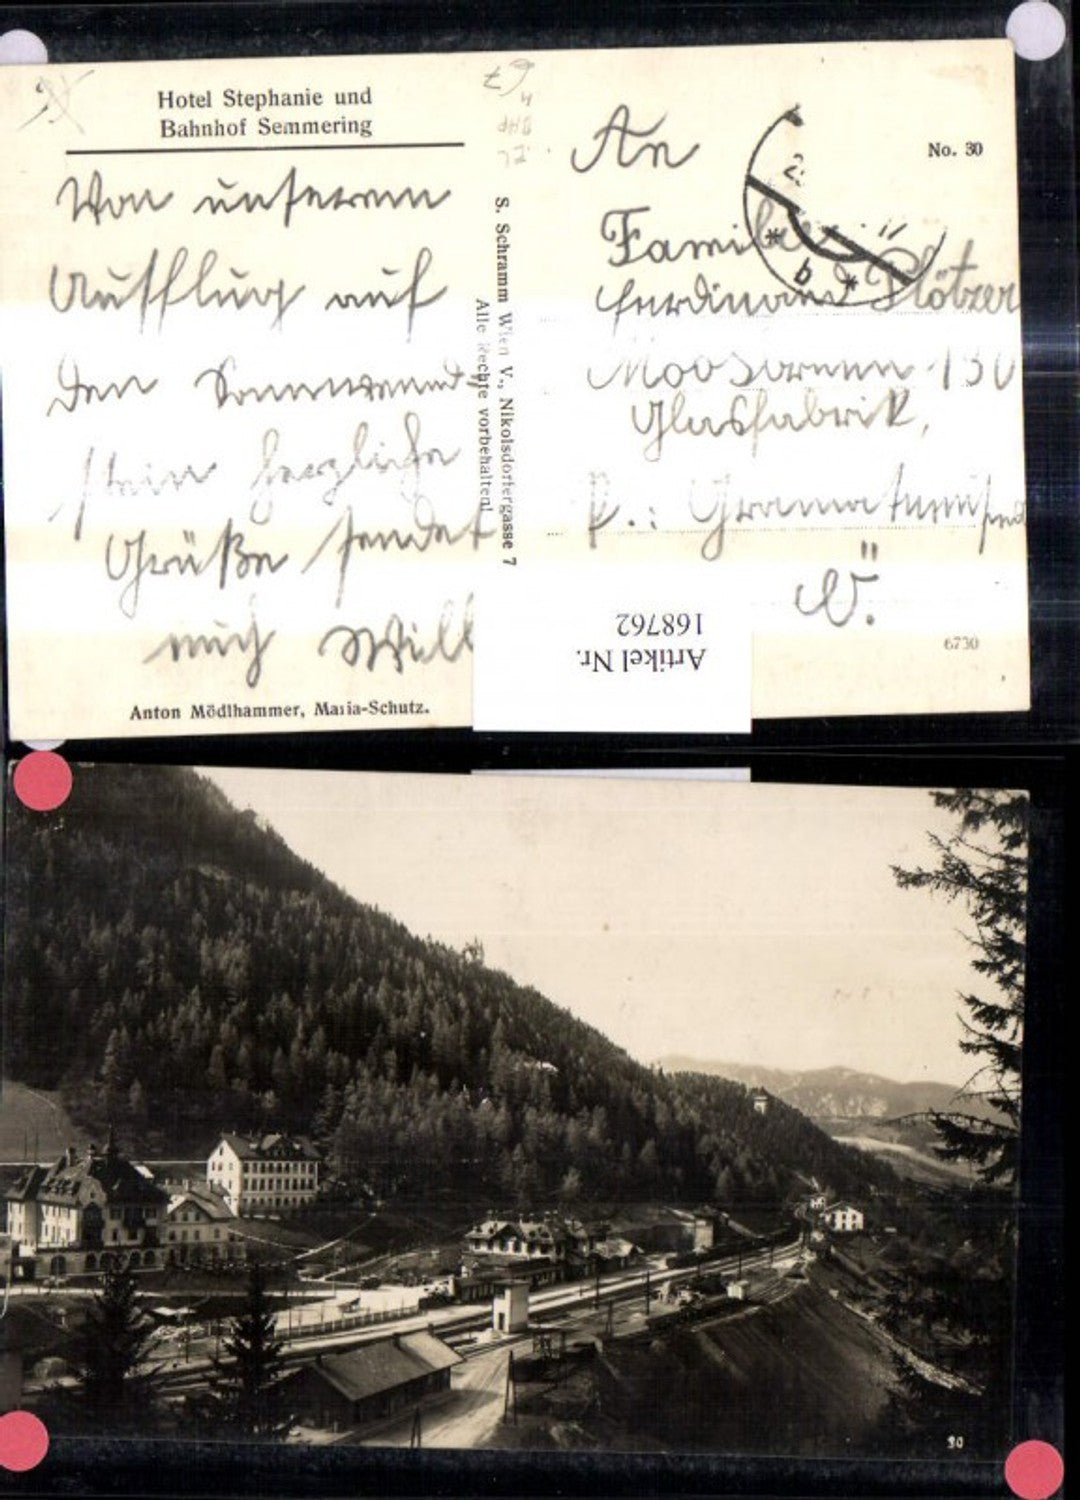 Hotel Stephanie und
Bahnhof Semmering
Von unserem
Ausflug auf
den Sonnwend-
stein herzliche
Grüße sendet
euch Willi
Anton Mödlhammer, Maria-Schutz.
S. Schramm Wien V., Nikolsdorfergasse 7
Alle Rechte vorbehalten!
No. 30
An
Familie
Ferdinand Plötzer
Moosbrunn 130
Glasfabrik,
P.: Gramatneusiedl
6730
b
Artikel Nr.
168762
30